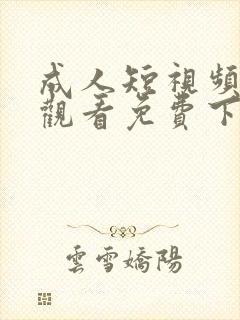 成人短視頻
觀看免費下
雲雪嬌陽